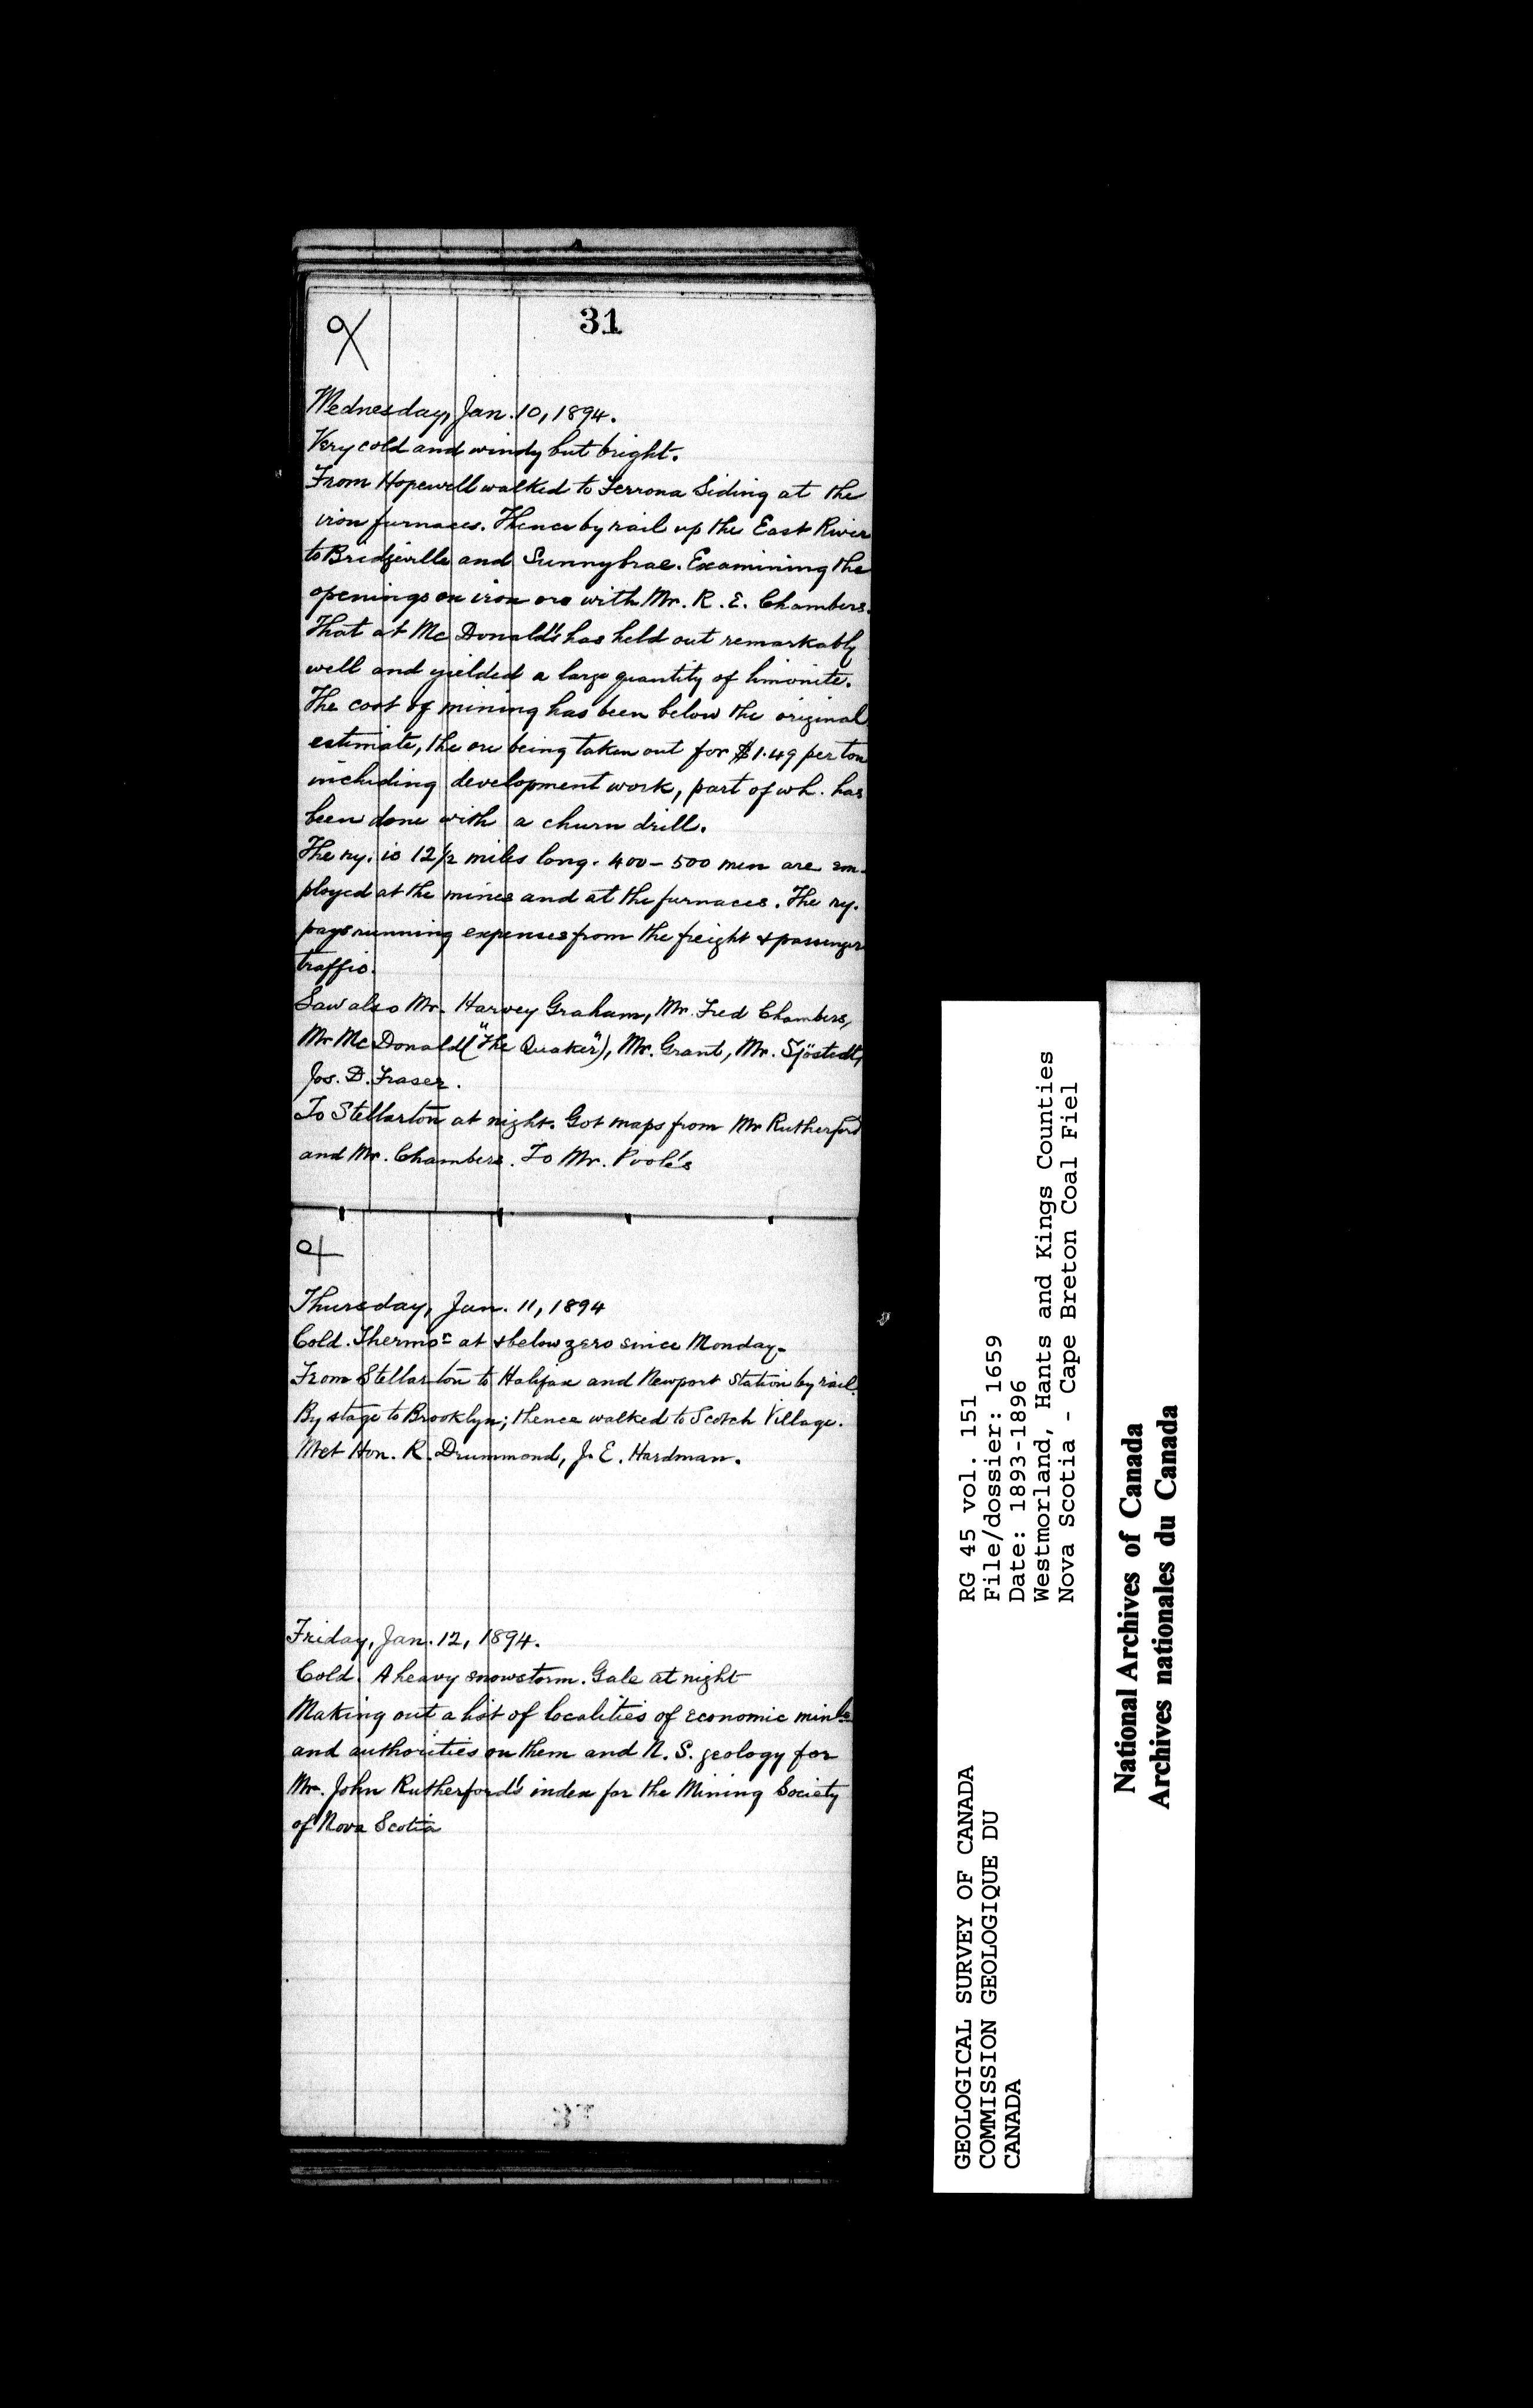 31
Wednesday, Jan. 10, 1894.
Very cold and windy but bright.
From Hopewell walked to Ferrona Siding at the
iron furnaces. Thence by rail up the East River
to Bridgeville and Sunnybrae. Examining the
openings on iron ore with Mr. R. E. Chambers.
That at McDonald's has held out remarkably
well and yielded a large quantity of limonite.
The cost of mining has been below the original
estimate, the ore being taken out for $1.49 per ton
including development work, part of wh. has
been done with a churn drill.
The ry. is 12 1/2 miles long. 400 - 500 men are em-
ployed at the mines and at the furnaces. The ry.
pays running expenses from the freight & passenger
traffic.
Saw also Mr. Harvey Graham, Mr. Fred Chambers,
Mr McDonald ("The Quaker"), Mr. Grant, Mr. Sjöstedt,
Jos. D. Fraser.
To Stellarton at night. Got maps from Mr Rutherford
and Mr. Chambers. To Mr. Poole's
Thursday, Jan. 11, 1894
Cold. Thermor at & below zero since Monday.
From Stellarton to Halifax and Newport Station by rail.
By stage to Brooklyn; thence walked to Scotch Village.
Met Hon. R. Drummond, J. E. Hardman.
Friday, Jan. 12, 1894.
Cold. A heavy snowstorm. Gale at night
Making out a list of localities of economic minls
and authorities on them and N. S. geology for
Mr. John Rutherford's index for the Mining Society
of Nova Scotia
GEOLOGICAL SURVEY OF CANADA
COMMISSION GEOLOGIQUE DU
CANADA
RG 45 vol. 151
File/dossier: 1659
Date: 1893-1896
Westmorland, Hants and Kings Counties
Nova Scotia - Cape Breton Coal Fiel
National Archives of Canada
Archives nationales du Canada